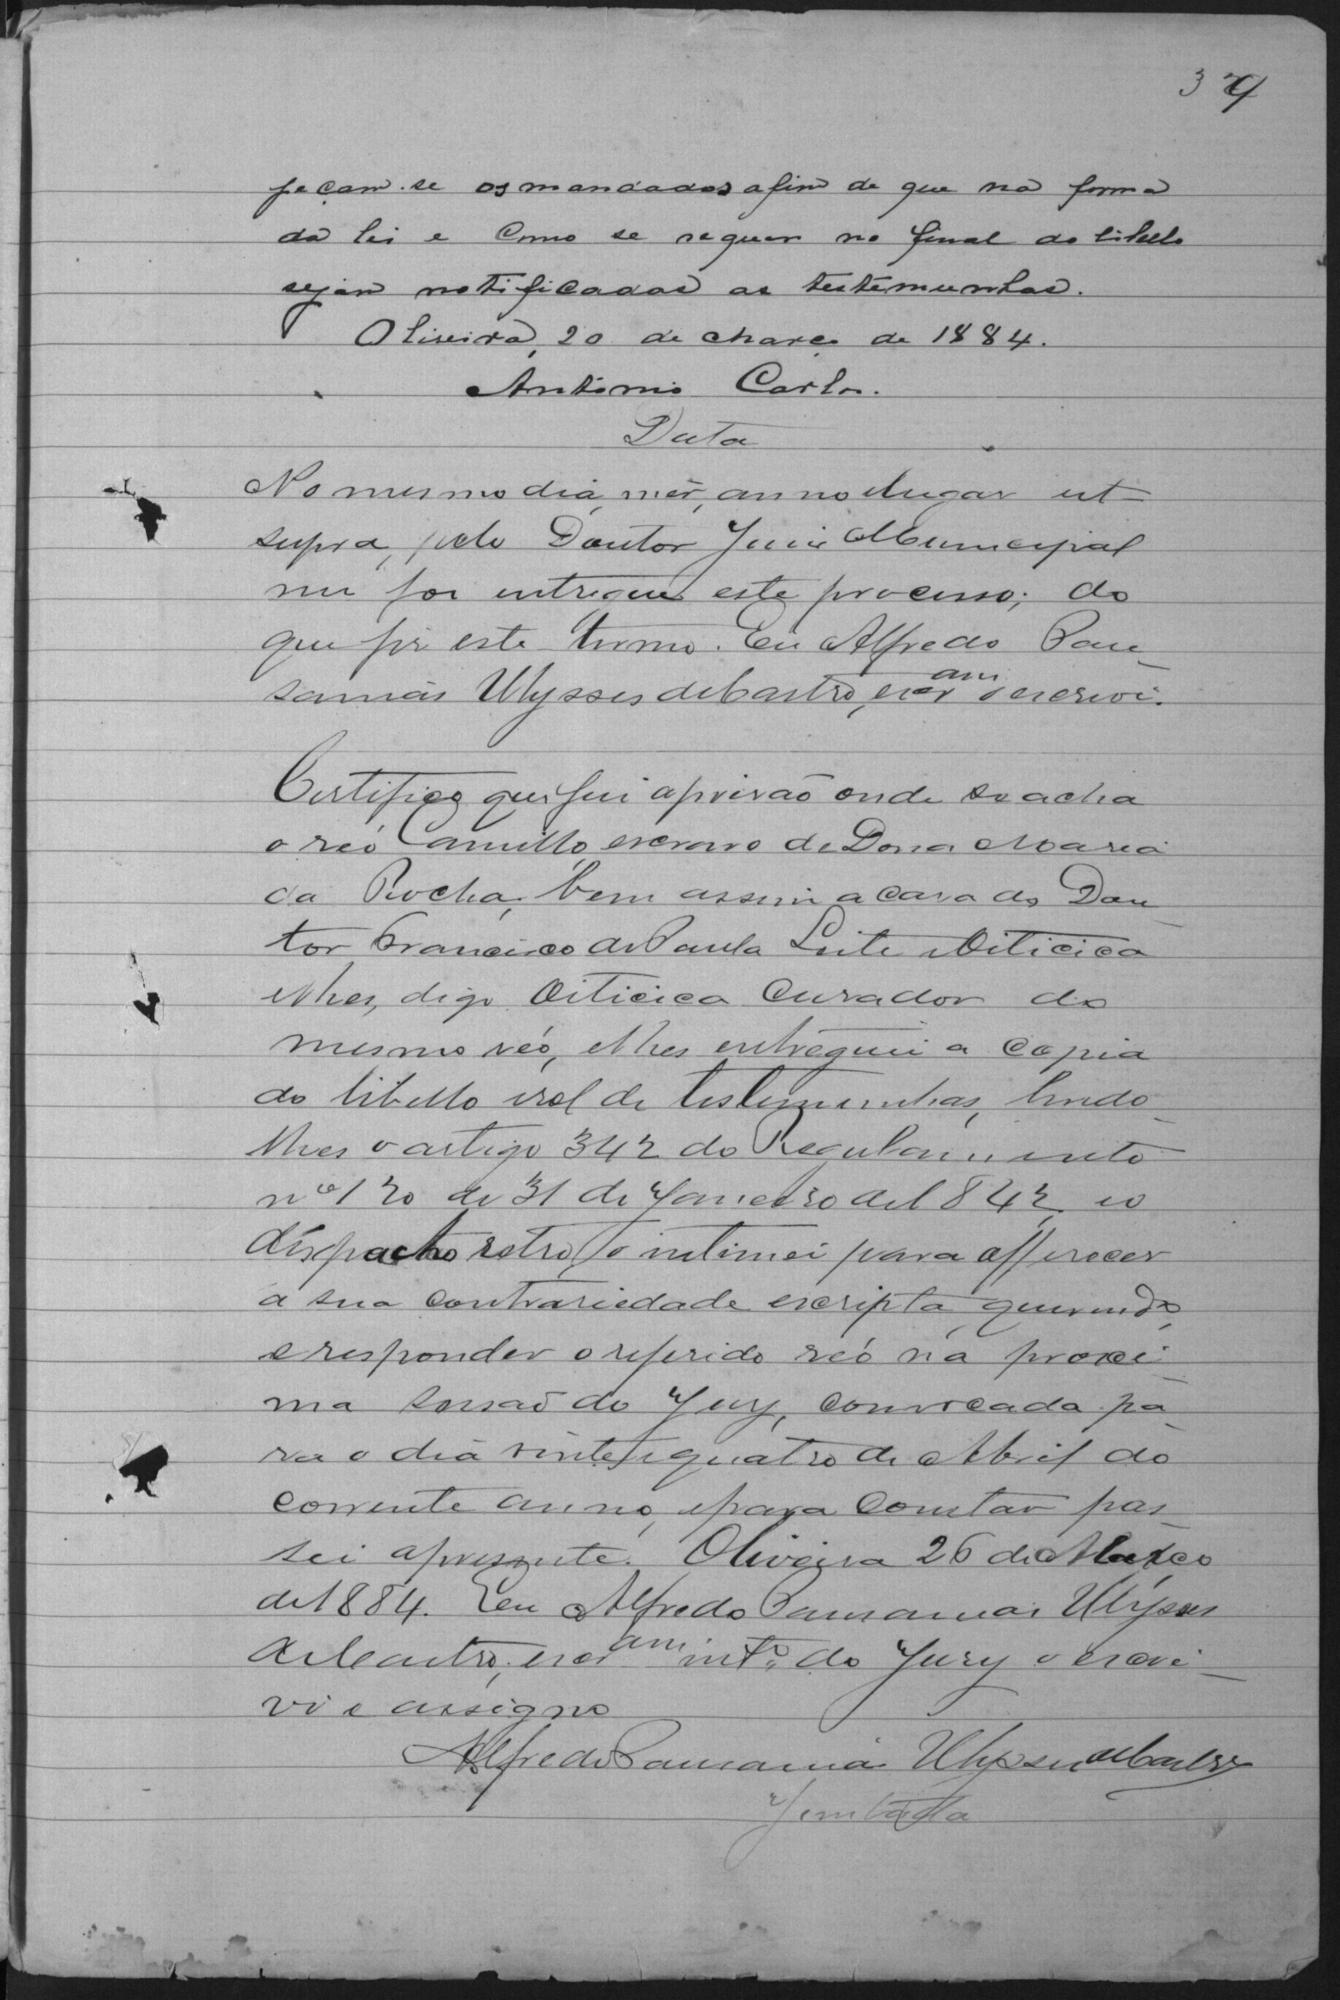 peçam-se os mandados afim de que na forma
da lei e como se requer no final do libello
sejam notificadas as testemunhas.
Oliveira, 20 de Março de 1884.
Antonio Carlos.
Data
No mesmo dia, mês, anno e lugar ut
supra, pelo Doutor Juis Municipal
me foi entregue este processo; do
que fis este termo. Eu Alfredo Pau-
sanias Ulysses de Castro, escram o escrevi.
Certifico que fui a prisão onde se acha
o reó Camillo, escravo de Dona Maria
da Rocha, bem assim a casa do Dou-
tor Francisco de Paula Leite Oiticica
e lhes, digo Oiticica Curador do
mesmo reó, e lhes entreguei a copia
do libello e rol de testemunhas, lendo-
lhes o artigo 342 do Regulamento
nº 120 de 31 de Janeiro de 1842 e o
dispacho retro, o intimei para offerecer
a sua contrariedade escripta, querendo,
e responder o referido reó na proxi-
ma sessaõ do Jury, convocada pa-
ra o dia vinte e quatro de Abril do
corrente anno, e para constar pas-
sei a presente. Oliveira 26 de Março
de 1884. Eu Alfredo Pausanias Ulysses
de Castro, escram intº do Jury o escre-
vi e assigno
Alfredo Pausanias Ulysses de Castro
Juntada